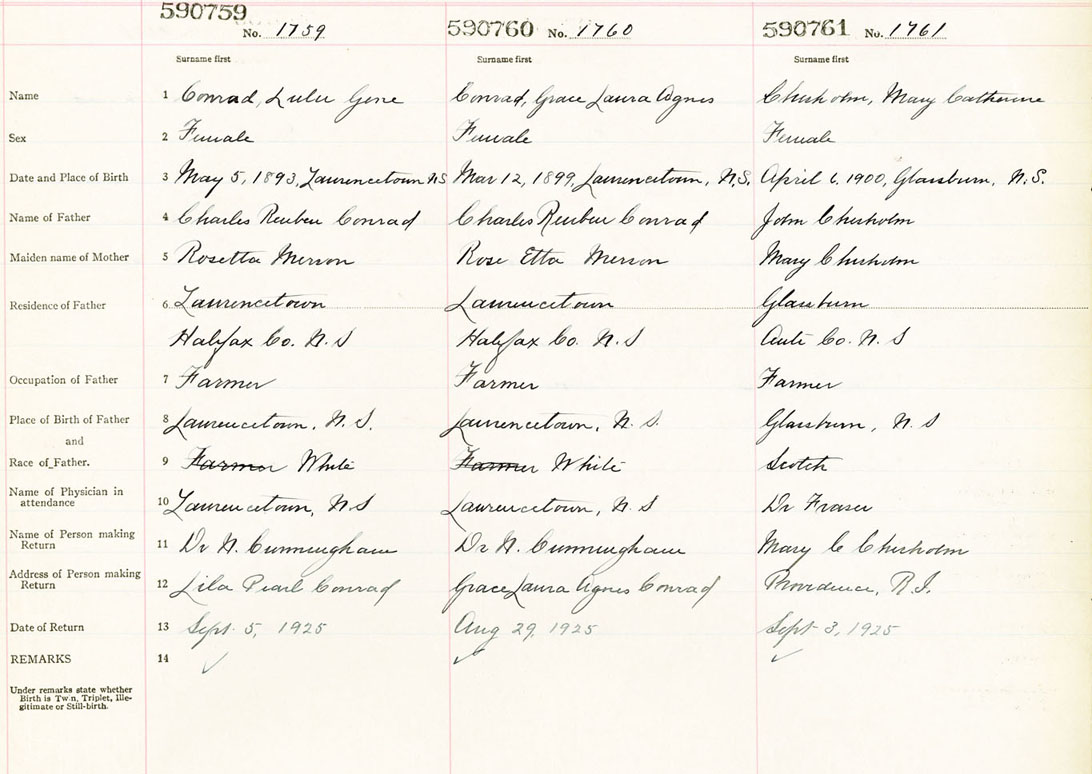 590759
No. 1759
590760 No. 1760
590761 No. 1761
Surname first Surname first Surname first
Name 1 Conrad, Lulu Gene Conrad, Grace Laura Agnes Chisholm, Mary Catherine
Sex 2 Female Female Female
Date and Place of Birth 3 May 5, 1893, Lawrencetown N.S Mar 12, 1899, Lawrencetown, N.S. April 6, 1900, Glassburn, N.S.
Name of Father 4 Charles Reuben Conrad Charles Reuben Conrad John Chisholm
Maiden name of Mother 5 Rosetta Merson Rose Etta Merson Mary Chisholm
Residence of Father 6 Lawrencetown Lawrencetown Glassburn
Halifax Co. N.S Halifax Co. N.S Anti Co. N.S
Occupation of Father 7 Farmer Farmer Farmer
Place of Birth of Father 8 Lawrencetown, N.S. Lawrencetown, N.S. Glassburn, N.S
and
Race of Father. 9 Farmer White Farmer White Scotch
Name of Physician in
attendance 10 Lawrencetown, N.S Lawrencetown, N.S Dr Fraser
Name of Person making
Return 11 Dr N. Cunningham Dr N. Cunningham Mary C Chisholm
Address of Person making
Return 12 Lila Pearl Conrad Grace Laura Agnes Conrad Providence, R.I.
Date of Return 13 Sept. 5, 1925 Aug 29, 1925 Sept 3, 1925
REMARKS 14 ✓ ✓ ✓
Under remarks state whether
Birth is Twin, Triplet, Ille-
gitimate or Still-birth.